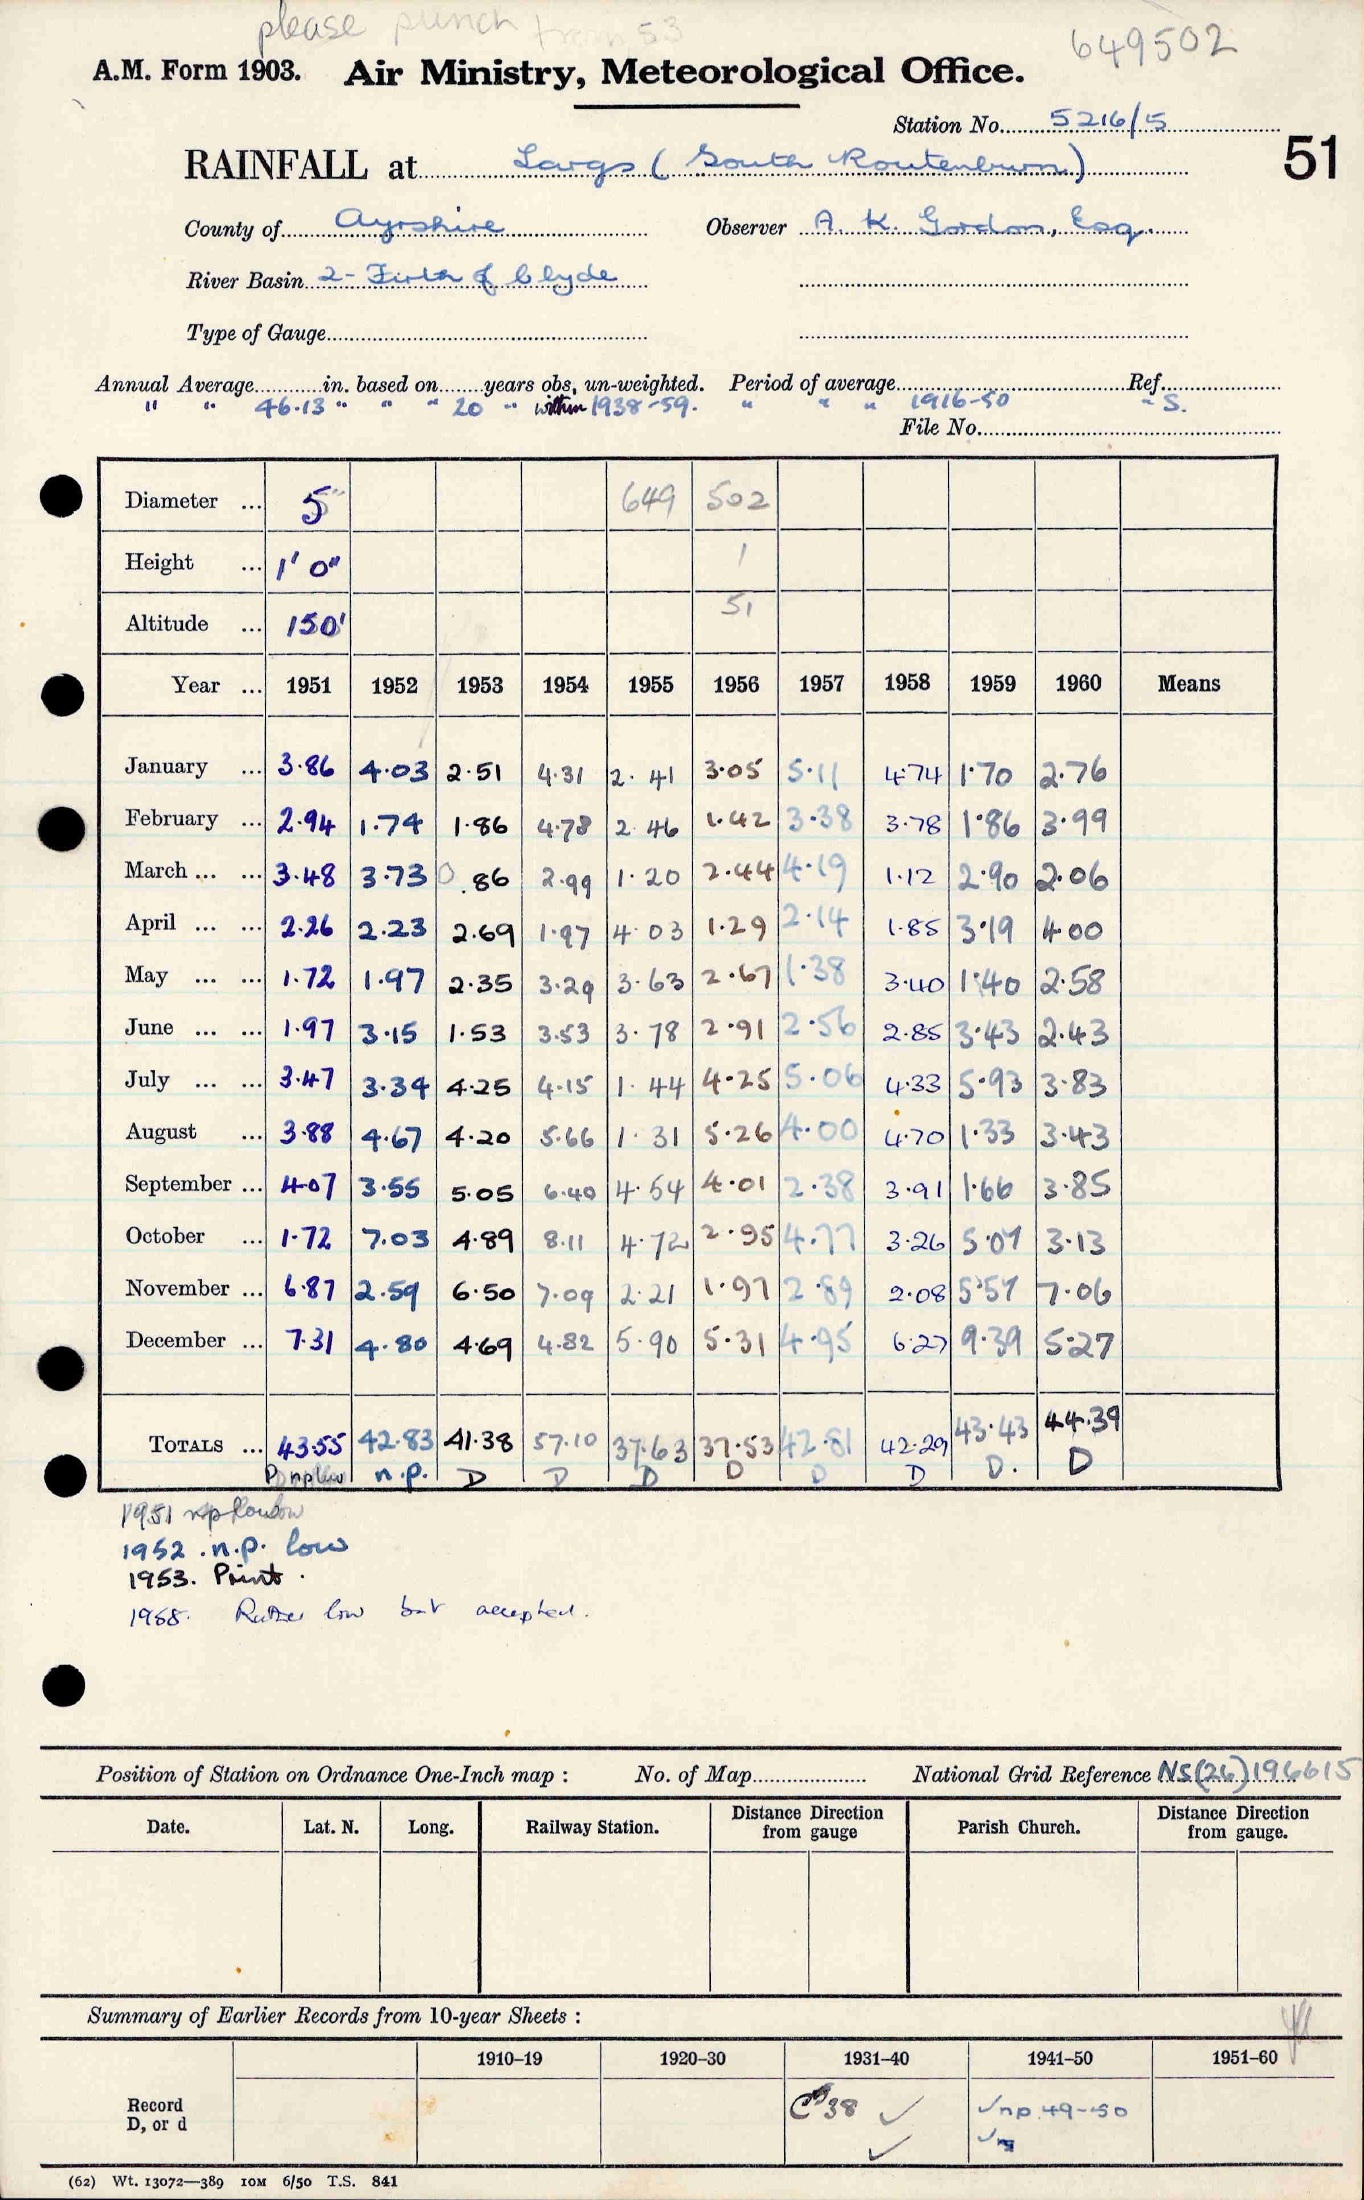 please punch from 53
649502
A.M. Form 1903. Air Ministry, Meteorological Office.
Station No. 5216/5
RAINFALL at Largs (South Routenburn)
51
County of Ayrshire Observer A. K. Gordon, Esq.
River Basin 2- Firth of Clyde
Type of Gauge
Annual Average in. based on years obs, un-weighted. Period of average Ref.
" " 46.13 " " " 20 " within 1938-59. " " " 1916-50 " S.
File No.
Diameter ... 5" 649 502
Height ... 1' 0" 1
Altitude ... 150' 51
Year ... 1951 1952 1953 1954 1955 1956 1957 1958 1959 1960 Means
January ... 3.86 4.03 2.51 4.31 2.41 3.05 5.11 4.74 1.70 2.76
February ... 2.94 1.74 1.86 4.78 2.46 1.42 3.38 3.78 1.86 3.99
March ... ... 3.48 3.73 0.86 2.99 1.20 2.44 4.19 1.12 2.90 2.06
April ... ... 2.26 2.23 2.69 1.97 4.03 1.29 2.14 1.85 3.19 4.00
May ... ... 1.72 1.97 2.35 3.29 3.63 2.67 1.38 3.40 1.40 2.58
June ... ... 1.97 3.15 1.53 3.53 3.78 2.91 2.56 2.85 3.43 2.43
July ... ... 3.47 3.34 4.25 4.15 1.44 4.25 5.06 4.33 5.93 3.83
August ... 3.88 4.67 4.20 5.66 1.31 5.26 4.00 4.70 1.33 3.43
September ... 4.07 3.55 5.05 6.40 4.54 4.01 2.38 3.91 1.66 3.85
October ... 1.72 7.03 4.89 8.11 4.72 2.95 4.77 3.26 5.07 3.13
November ... 6.87 2.59 6.50 7.09 2.21 1.97 2.89 2.08 5.57 7.06
December ... 7.31 4.80 4.69 4.82 5.90 5.31 4.95 6.27 9.39 5.27
TOTALS ... 43.55 42.83 41.38 57.10 37.63 37.53 42.81 42.29 43.43 44.39
n.p. D D D D D D D. D
1951 np
1952 .n.p. low
1953. Print.
1958. Rather low but accepted.
Position of Station on Ordnance One-Inch map : No. of Map National Grid Reference NS(26)196615
Date. Lat. N. Long. Railway Station. Distance Direction from gauge Parish Church. Distance Direction from gauge.
Summary of Earlier Records from 10-year Sheets :
1910–19 1920–30 1931–40 1941–50 1951–60
Record D, or d 38 ✓ ✓np 49-50
✓
(62) Wt. 13072—389 10M 6/50 T.S. 841